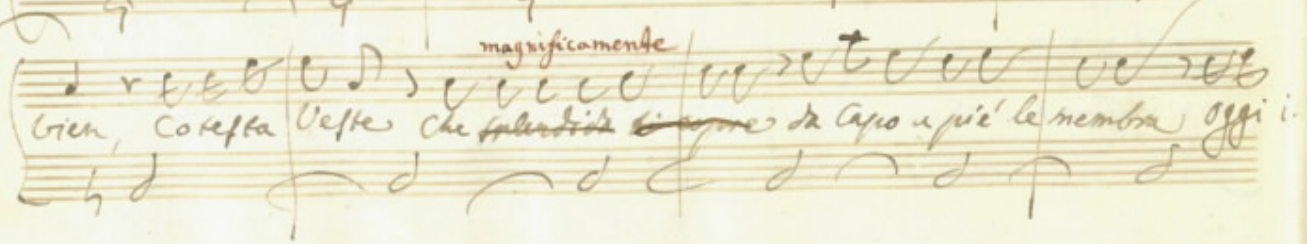 magnificamente
bien, Cotesta Veste che splendida ti copre da Capo a pié le membra, oggi i